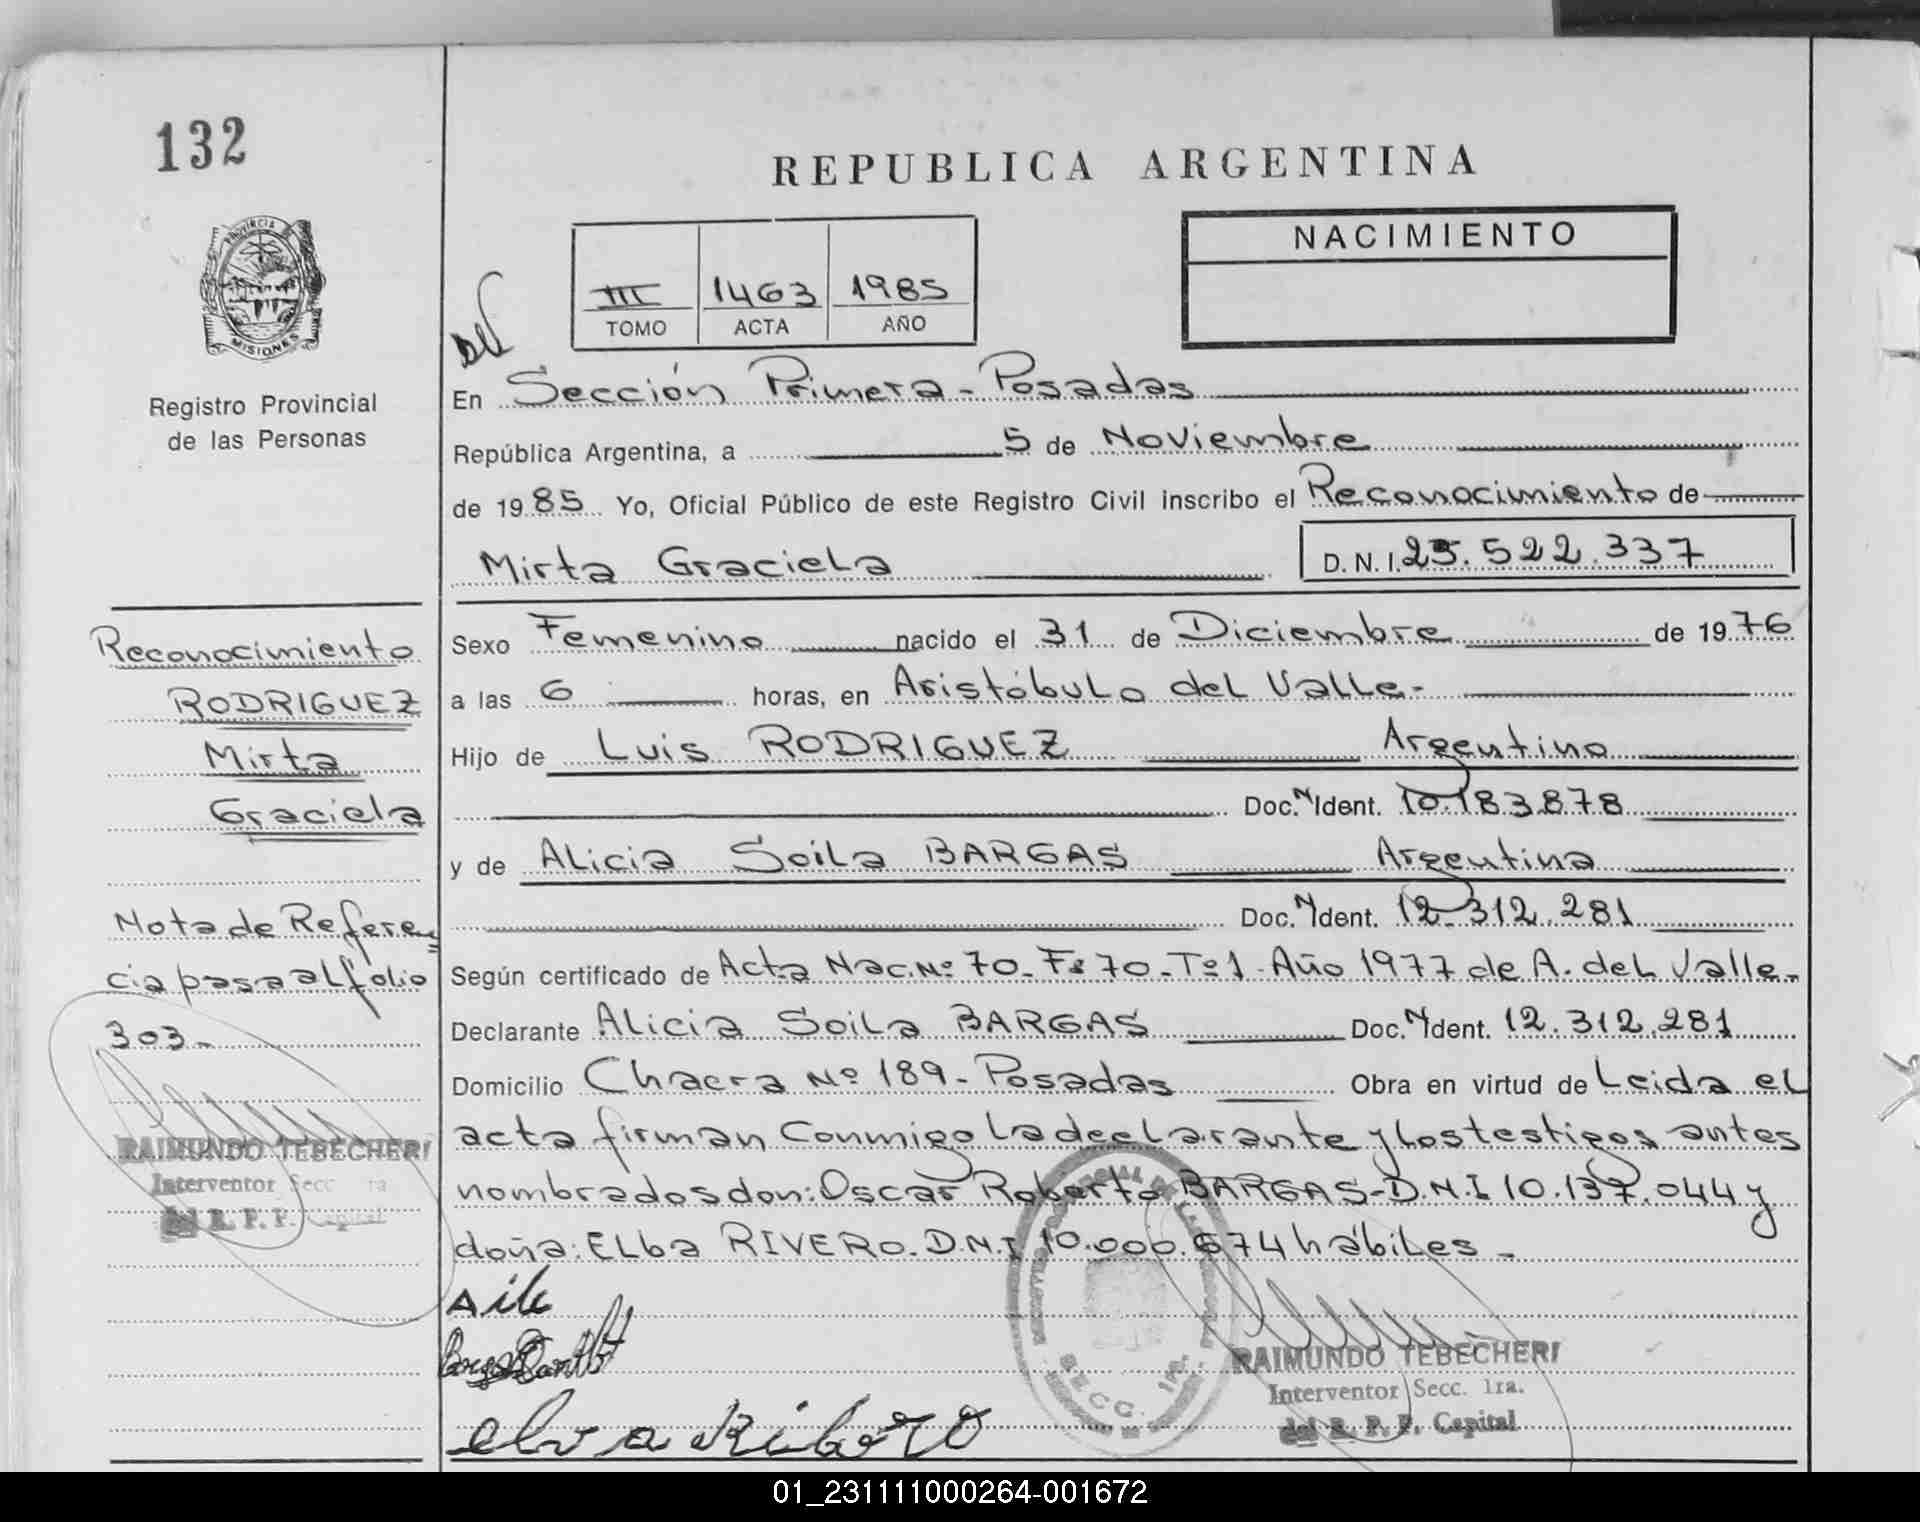 132
REPUBLICA ARGENTINA
PROVINCIA DE
MISIONES
Registro Provincial
de las Personas
III 1463 1985
TOMO ACTA AÑO
NACIMIENTO
En Sección Primera - Posadas
República Argentina, a 5 de Noviembre
de 1985 Yo, Oficial Público de este Registro Civil inscribo el Reconocimiento de
Mirta Graciela D. N. I. 25.522.337
Sexo Femenino nacido el 31 de Diciembre de 1976
a las 6 horas, en Aristóbulo del Valle.-
Hijo de Luis RODRIGUEZ Argentino
Doc. N Ident. 10.183.878
y de Alicia Soila BARGAS Argentina
Doc. N Ident. 12.312.281
Según certificado de Acta Nac. Nº 70- Fº 70- Tº 1- Año 1977 de A. del Valle.
Declarante Alicia Soila BARGAS Doc. N Ident. 12.312.281
Domicilio Chacra Nº 189 - Posadas Obra en virtud de Leida el
acta firman conmigo la declarante y los testigos antes
nombrados don: Oscar Roberto BARGAS - D.N.I 10.137.044 y
doña: Elba RIVERO. D.N.I 10.000.674 hábiles -
Reconocimiento
RODRIGUEZ
Mirta
Graciela
Nota de Referen
cia pasa al folio
303-
RAIMUNDO TEBECHERI
Interventor Secc 1ra
del R. P. P. Capital
elva Ribero
SECC. 1RA.
RAIMUNDO TEBECHERI
Interventor Secc. 1ra.
del R. P. P. Capital
01_231111000264-001672